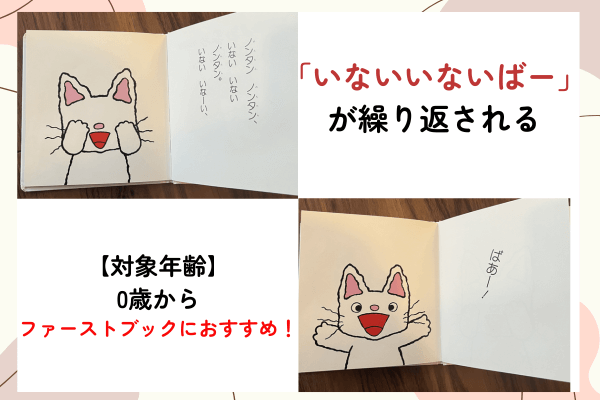 ノンタン ノンタン、
いない いない
ノンタン。
いない いなーい、
「いないいないばー」
が繰り返される
【対象年齢】
0歳から
ファーストブックにおすすめ！
ばあー！